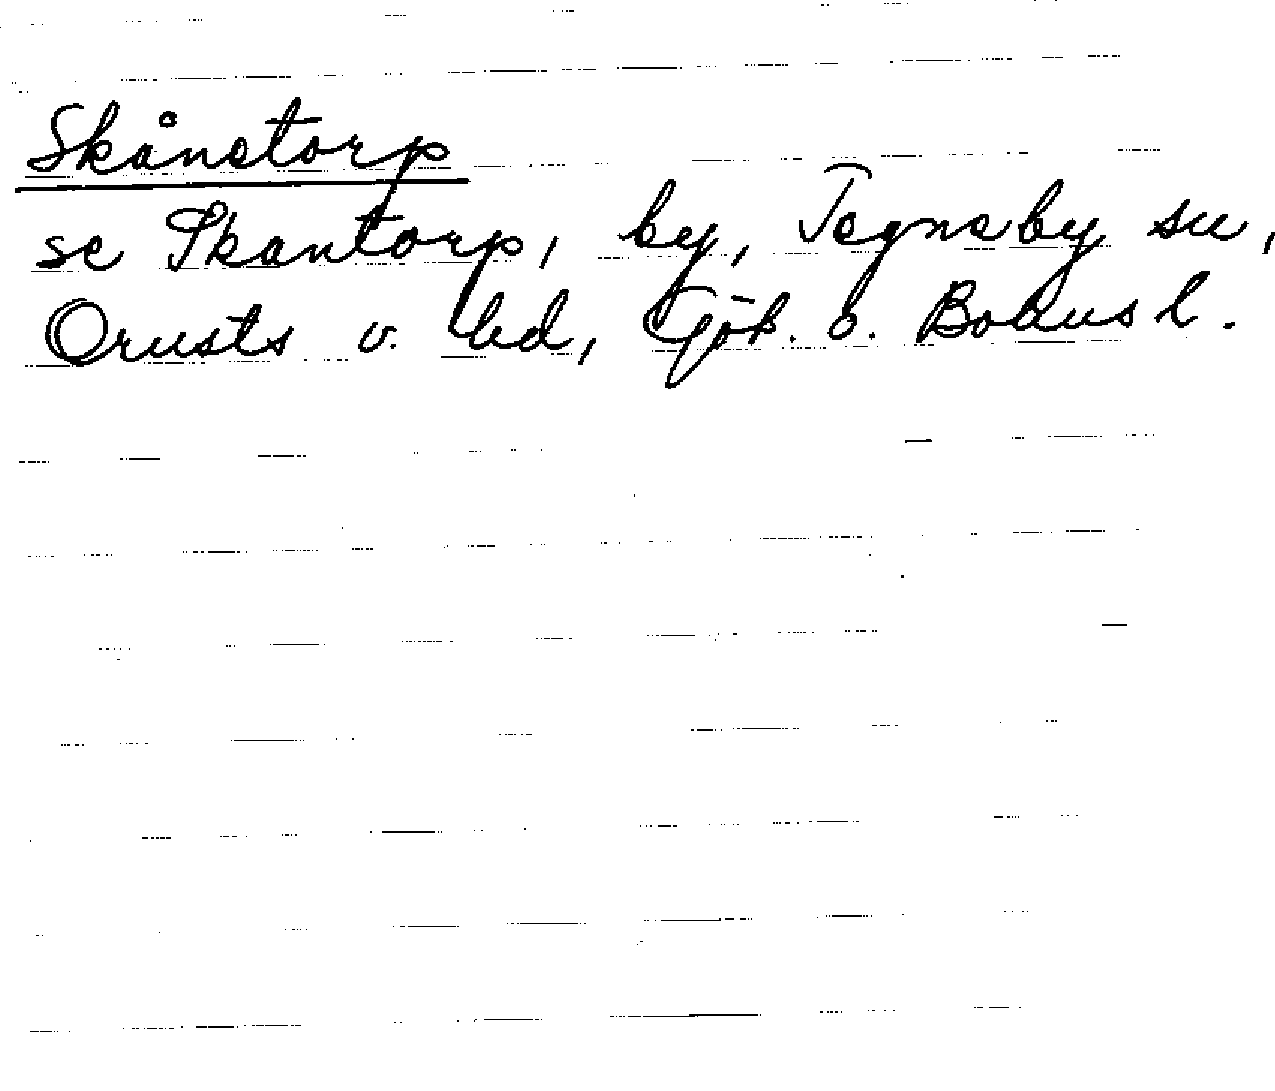 Skånetorp
se Skantorp, by, Tegneby sn,
Orusts v. hd, Göt. o. Bohus l.